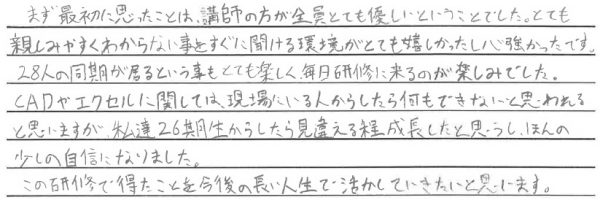 まず最初に思ったことは、講師の方が全員とても優しいということでした。とても
親しみやすくわからない事をすぐに聞ける環境がとても嬉しかったし心強かったです。
28人の同期が居るという事もとても楽しく毎日研修に来るのが楽しみでした。
CADやエクセルに関しては、現場にいる人からしたら何もできないと思われる
と思いますが、私達26期生からしたら見違える程成長したと思うし、ほんの
少しの自信になりました。
この研修で得たことを今後の長い人生で活かしていきたいと思います。